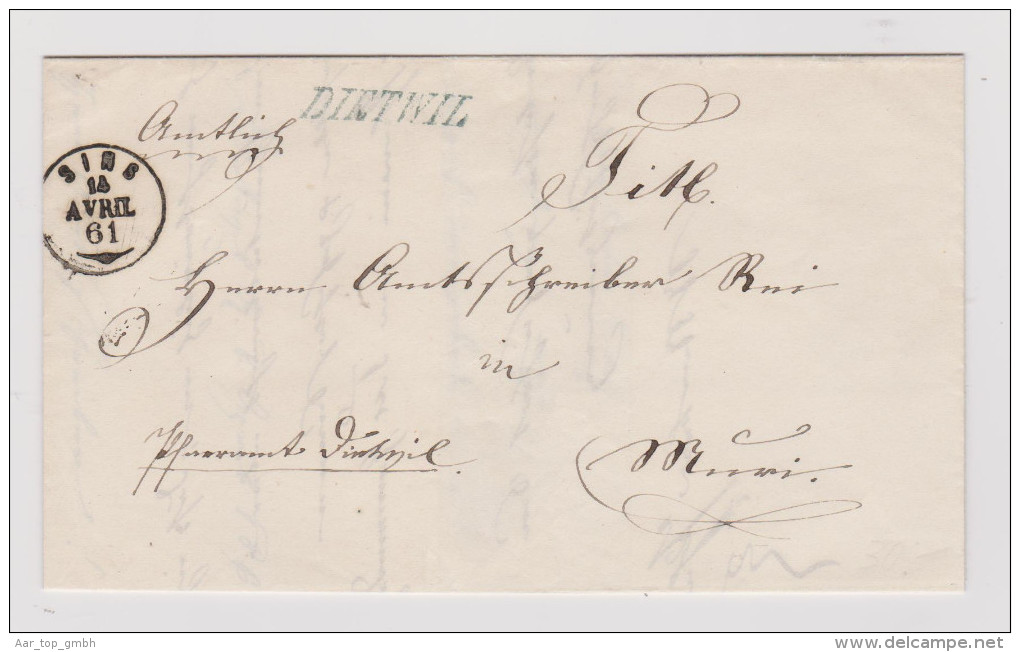 DIETWIL
Amtlich
SINS
14
AVRIL
61
Titl.
Herrn Amtsschreiber Rei
in
Pfarramt Dietwil.
Muri.
30.
Aar_top_gmbh
www.delcampe.net